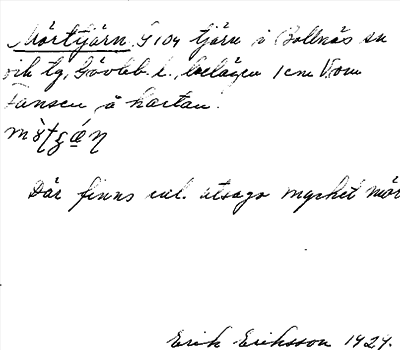 Mörtjärn. G 104 tjärn i Bollnäs sn
och tg, Gävleb. l., belägen 1 cm V om
Tansen å kartan.
Där finns enl. utsago mycket mör
Erik Eriksson 1929.